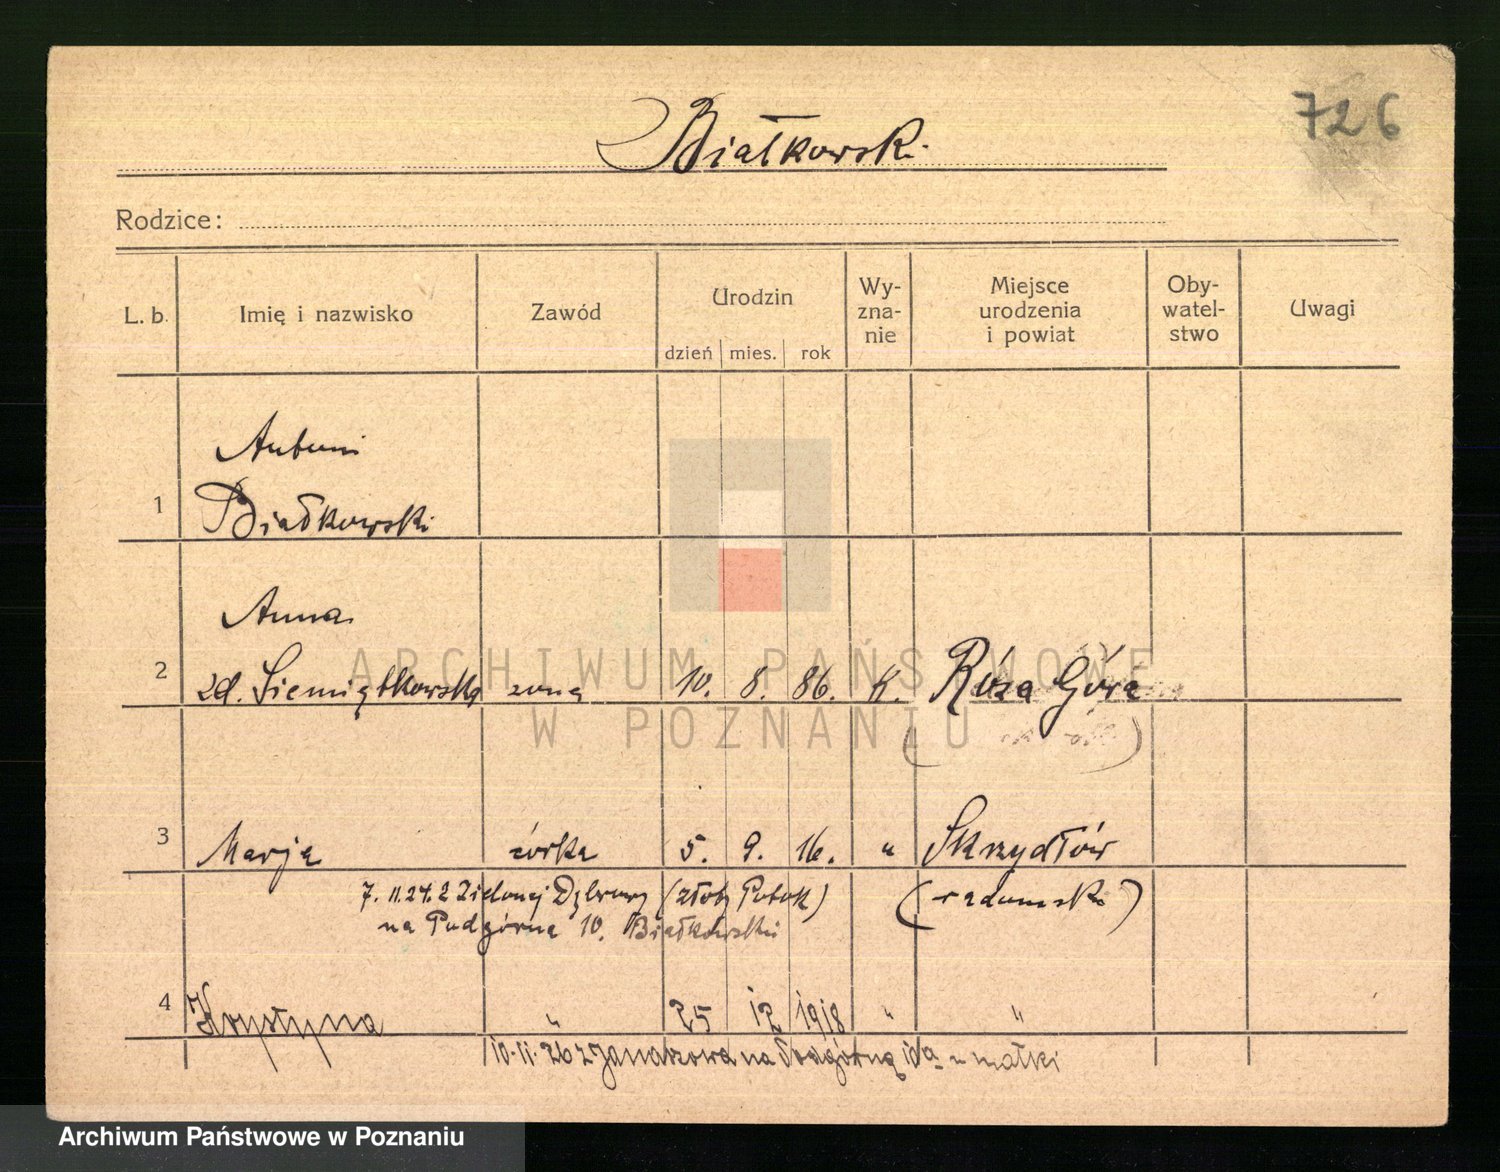 726
Białkowski
Rodzice:
L. b. Imię i nazwisko Zawód Urodzin dzień mies. rok Wy- zna- nie Miejsce urodzenia i powiat Oby- watel- stwo Uwagi
Antoni
1 Białkowski
Anna
2 zd. Siemiątkowska żona 10. 8. 86. K. Róża Góra
3 Marja córka 5. 9. 16. " Skrzydłów
7. 11.27. z Zielonej Dąbrowy (złoty Potok) (radomski)
na Podgórna 10. Białkowski
4 Krystyna " 25 12 1918 " "
10.11.26 z Janaszowa na Podgórną 10a u matki
ARCHIWUM PAŃSTWOWE
W POZNANIU
Archiwum Państwowe w Poznaniu